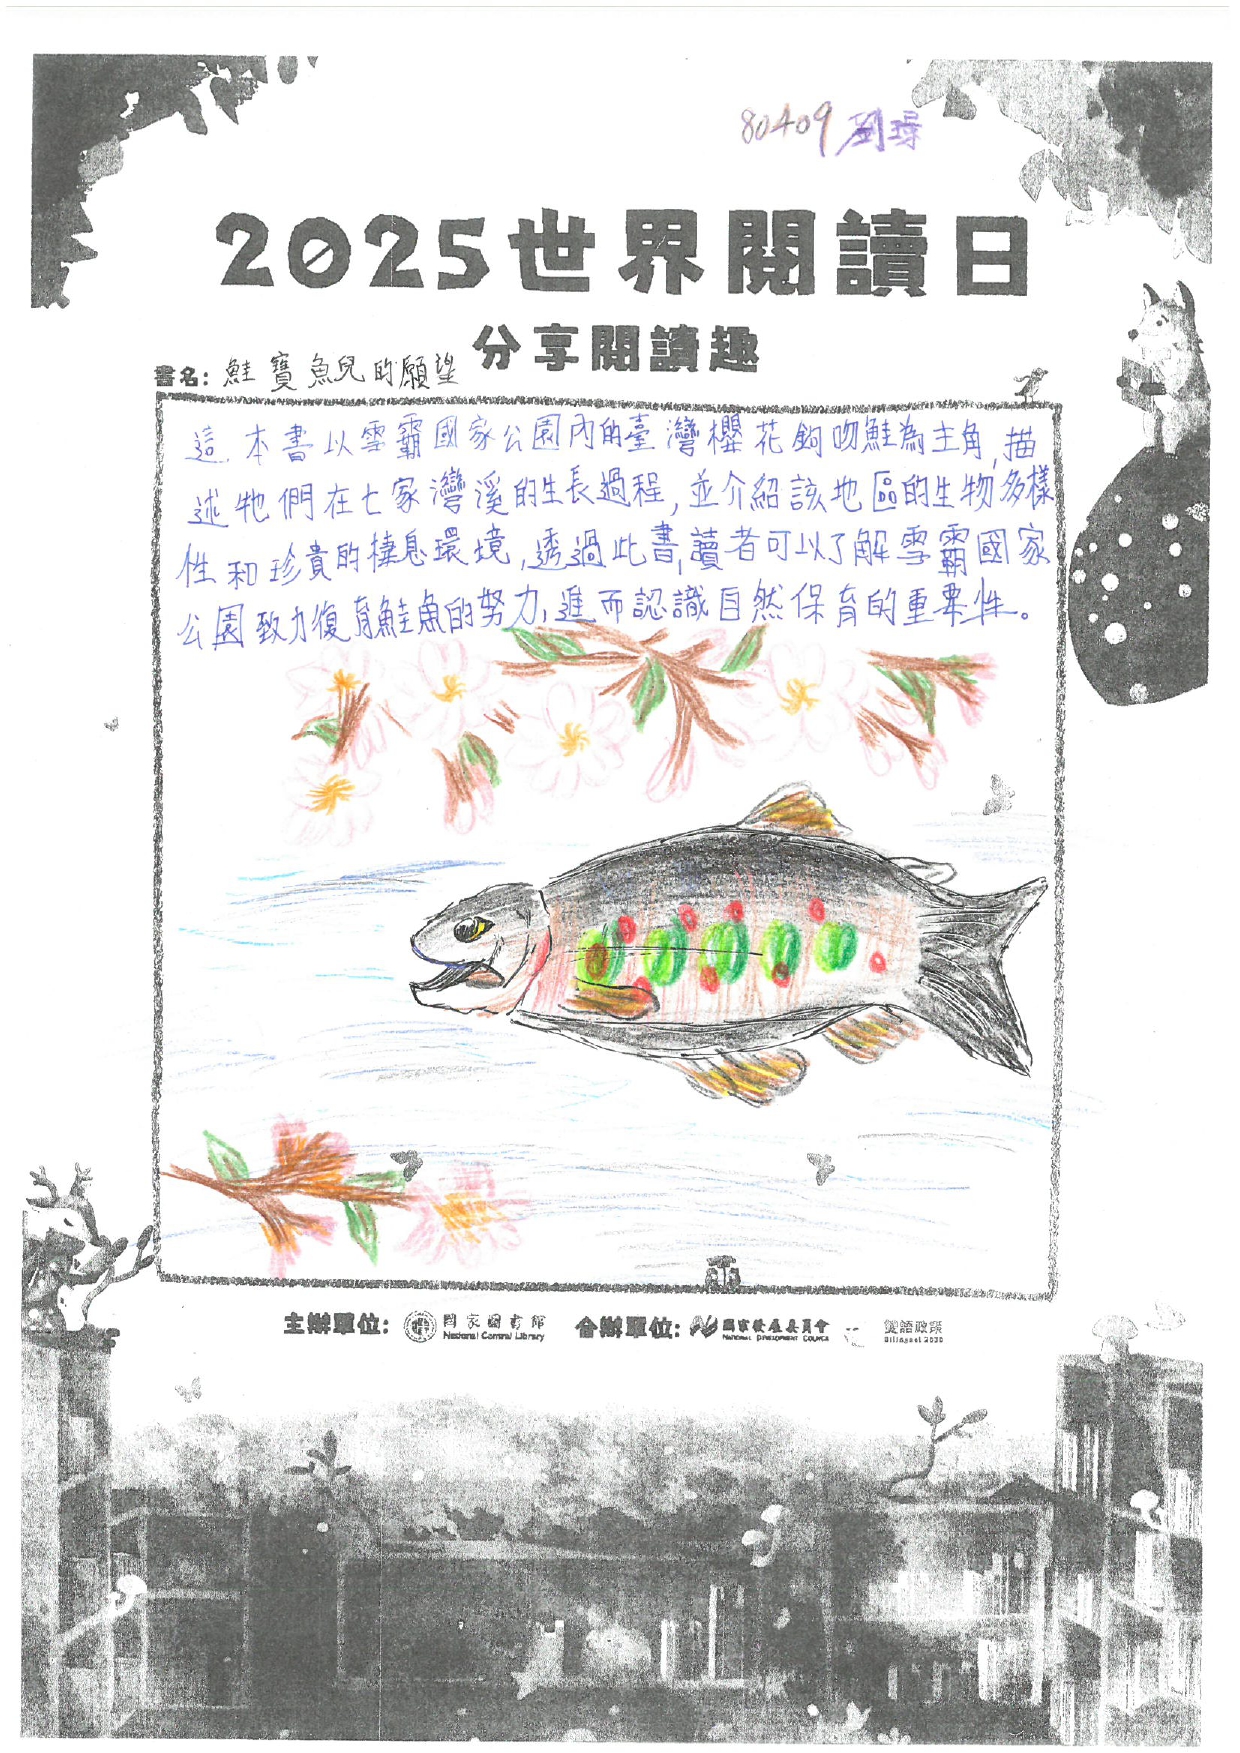 80409 劉璟
2025世界閱讀日
分享閱讀趣
書名: 鮭寶魚兒的願望
這本書以雪霸國家公園內的臺灣櫻花鉤吻鮭為主角,描
述牠們在七家灣溪的生長過程,並介紹該地區的生物多樣
性和珍貴的棲息環境,透過此書,讀者可以了解雪霸國家
公園致力復育鮭魚的努力,進而認識自然保育的重要性。
主辦單位: 國家圖書館 合辦單位: 國家發展委員會 雙語政策
National Central Library NATIONAL DEVELOPMENT COUNCIL Bilingual 2030